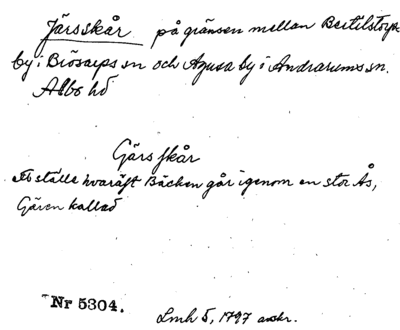 Järsskår på gränsen mellan Bertilstorps
by i Brösarps sn och Agusa by i Andrarums sn.
Albo hd
Gärsskår
Et ställe hvaräst Bäcken går igenom en stor Ås,
Gären kallad
Nr 5304.
Lmh 5, 1797 avskr.